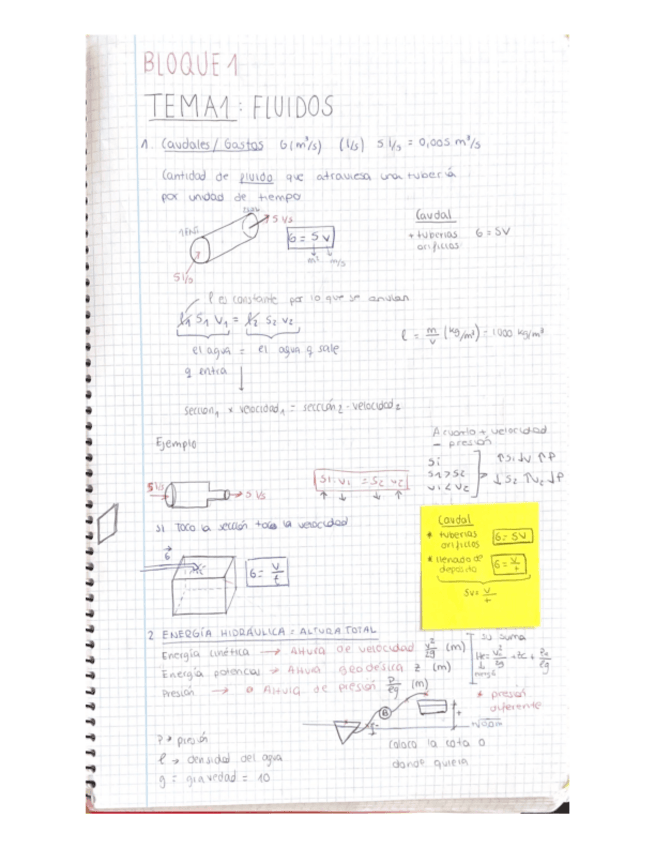 BLOQUE 1
TEMA 1: FLUIDOS
1. Caudales / Gastos G(m³/s) (l/s) 5 l/s = 0,005 m³/s
Cantidad de fluido que atraviesa una tubería
por unidad de tiempo
5 l/s
G = S V
m² m/s
5 l/s
Caudal
+ tuberías G = SV
orificios
ρ es constante por lo que se anulan
ρ1 S1 V1 = ρ2 S2 V2
ρ = m/v (kg/m³) = 1000 kg/m³
el agua = el agua q sale
q entra
sección1 x velocidad1 = sección2 · velocidad2
Ejemplo
A cuanta + velocidad
- presión
Si
S1 > S2
V1 < V2
↑S1 ↓V ↑P
↓S2 ↑V2 ↓P
5 l/s
5 l/s
S1 · V1 = S2 V2
↑ ↓ ↓ ↑
si toco la sección toco la velocidad
G
G = V/t
Caudal
* tuberías G = SV
orificios
* llenado de G = V/t
deposito
SV = V/t
2 ENERGÍA HIDRÁULICA = ALTURA TOTAL
Energía cinética → Altura de velocidad v²/2g (m)
Energía potencial → Altura geodésica z (m)
Presión → Altura de presión P/ρg (m)
su suma
* presión
diferente
B
P → presión
ρ → densidad del agua
g = gravedad = 10
coloco la cota 0
donde quiera